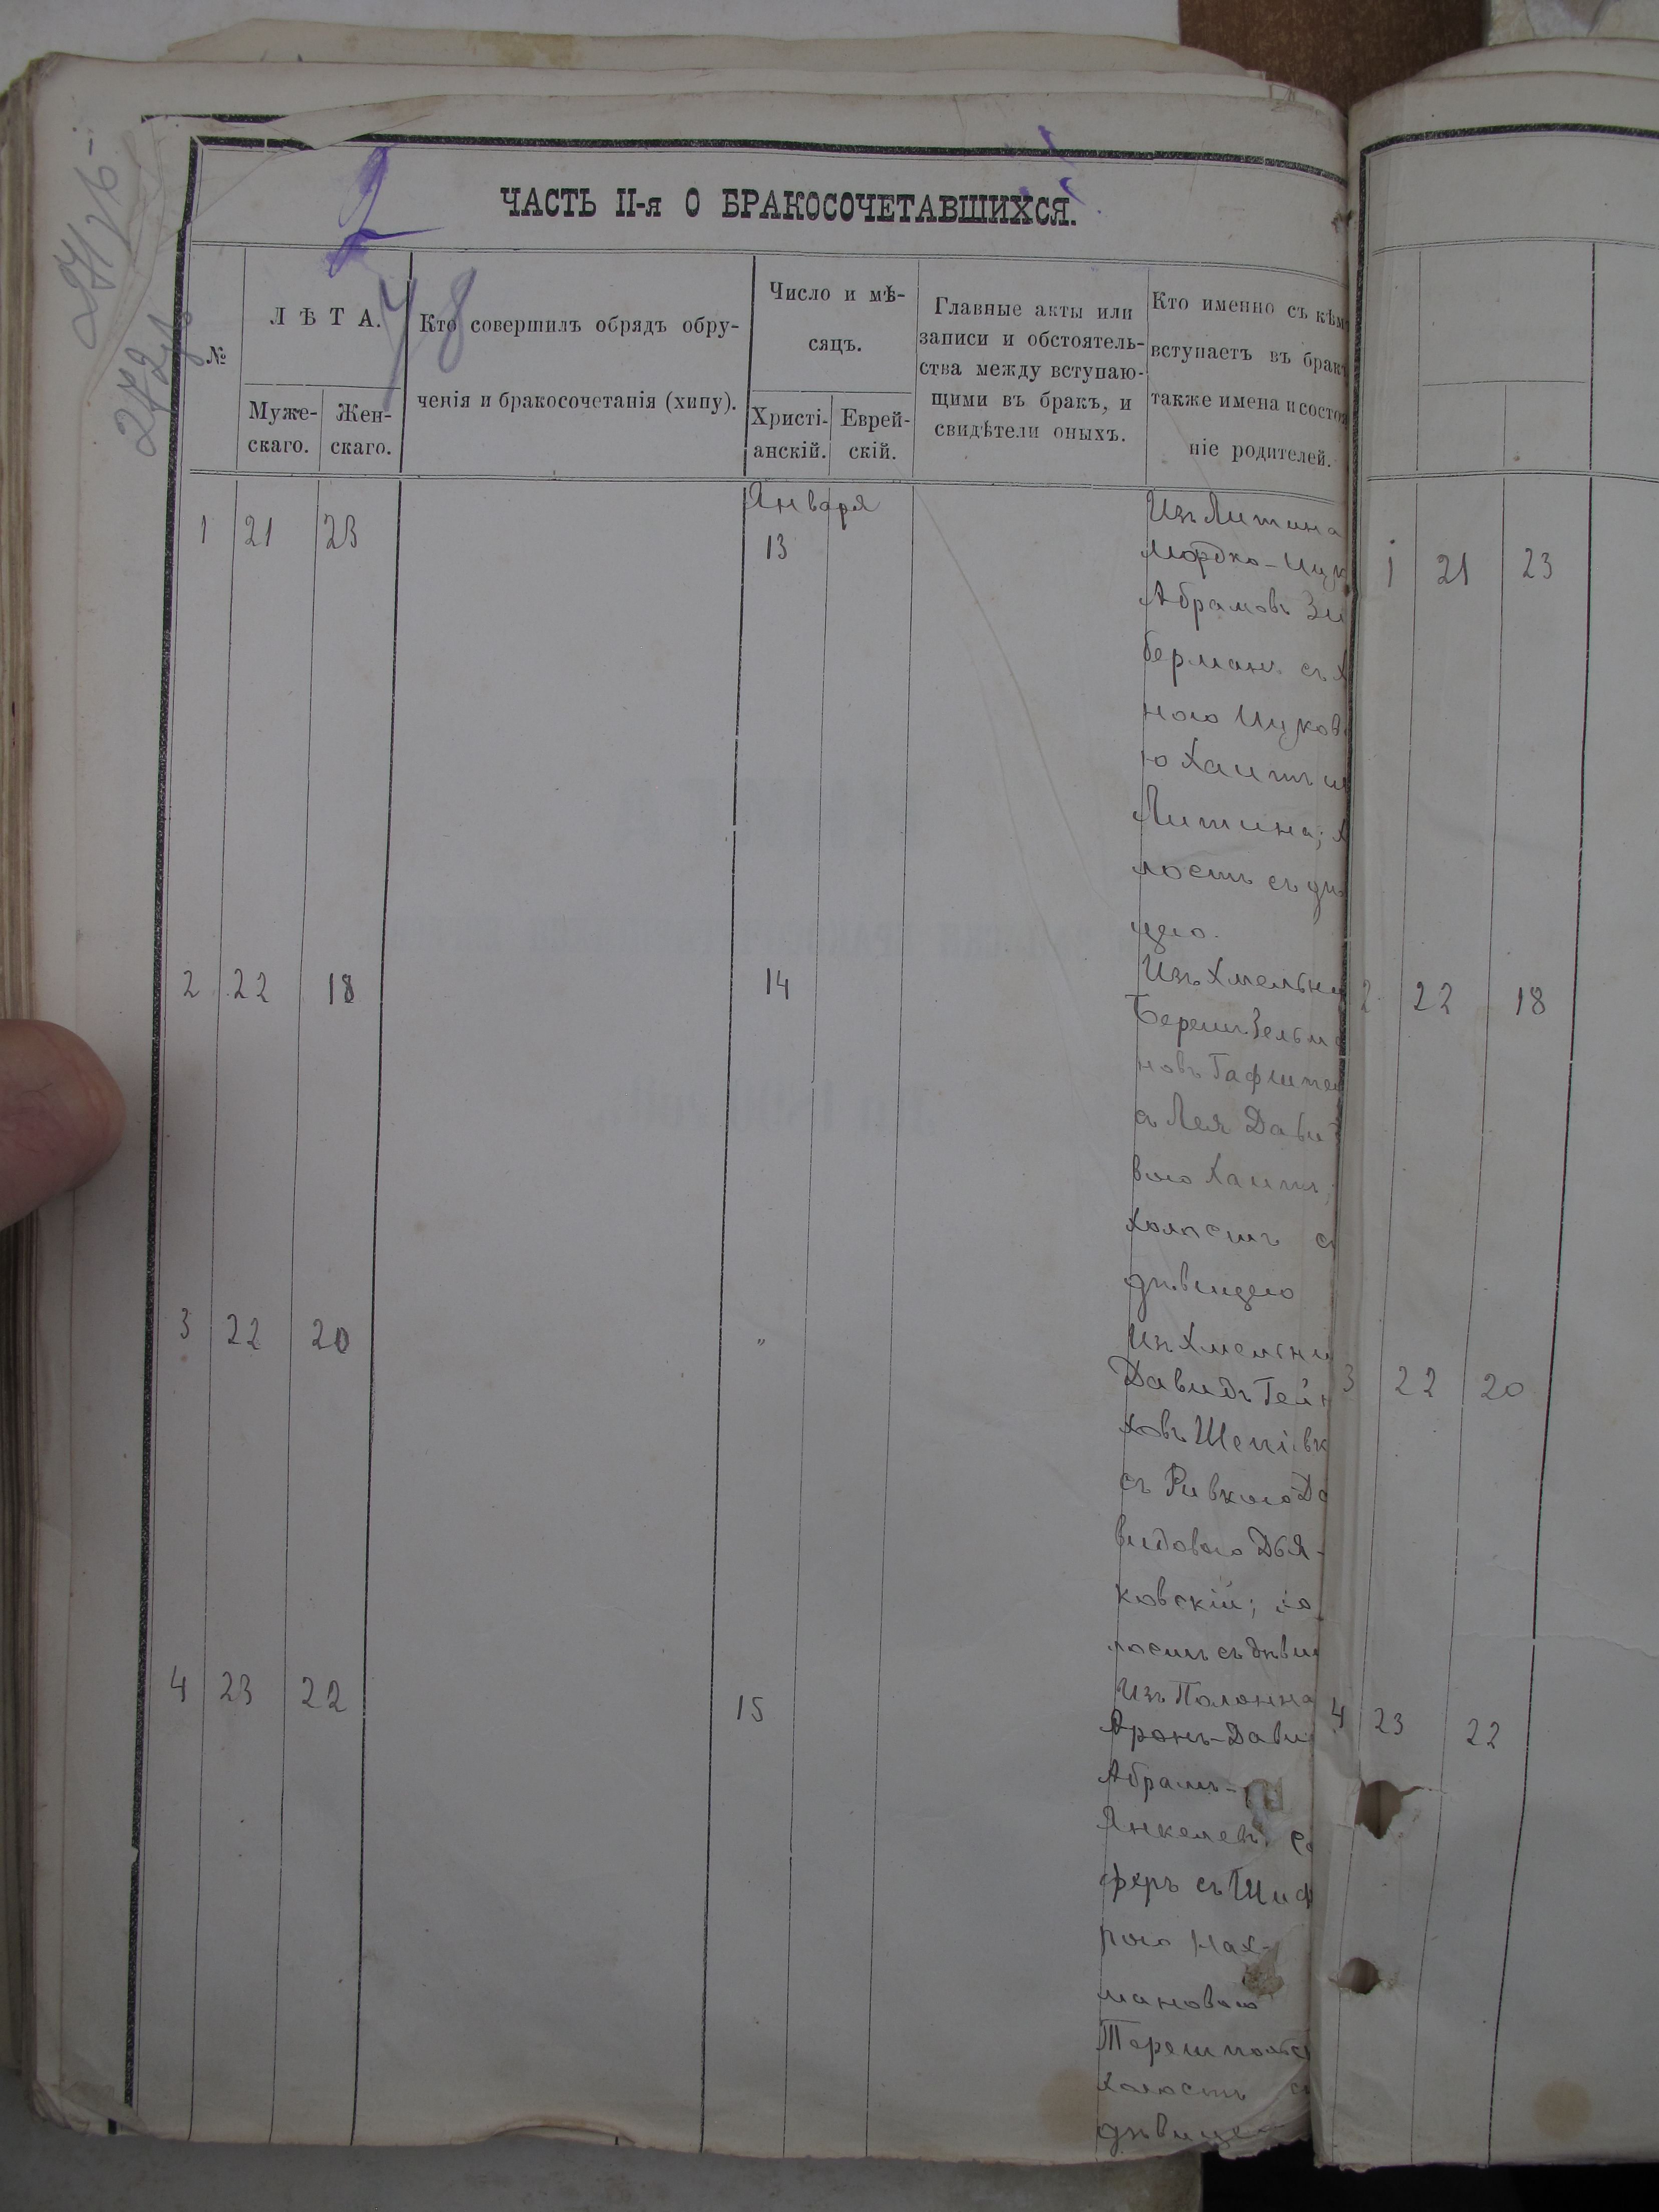 2
48
ЧАСТЬ II-я О БРАКОСОЧЕТАВШИХСЯ.
№
ЛѢТА.
Муже-
скаго.
Жен-
скаго.
Кто совершилъ обрядъ обру-
ченія и бракосочетанія (хипу).
Число и мѣ-
сяцъ.
Христі-
анскій.
Еврей-
скій.
Главные акты или
записи и обстоятель-
ства между вступаю-
щими въ бракъ, и
свидѣтели оныхъ.
Кто именно съ кѣм
вступаетъ въ брак
также имена и состоя
ніе родителей.
1 21 23
Января
13
Изъ Литина
Мордко-Ицк
Абрамовъ Зи
берманъ съ Х
ною Ицков
ю Хаитъ и
Литина; х
лостъ съ дѣ
ицею.
2 22 18
14
Изъ Хмельни
Берешъ Зельма
новъ Гафштей
съ Лея Давид
вою Хаитъ;
холостъ съ
дѣвицею
3 22 20
"
Изъ Хмельни
Давидъ Гейн
ховъ
съ Ривкою Да
видовою Дья-
ковскій; хо
лостъ съ дѣви
4 23 22
15
Изъ Полонна
Аронъ-Давид
Абрамъ-
Янкелевъ Со
феръ съ Шиф
рою Нах-
мановою
Терешпольс
холостъ съ
дѣвице
1 21 23
2 22 18
3 22 20
4 23 22